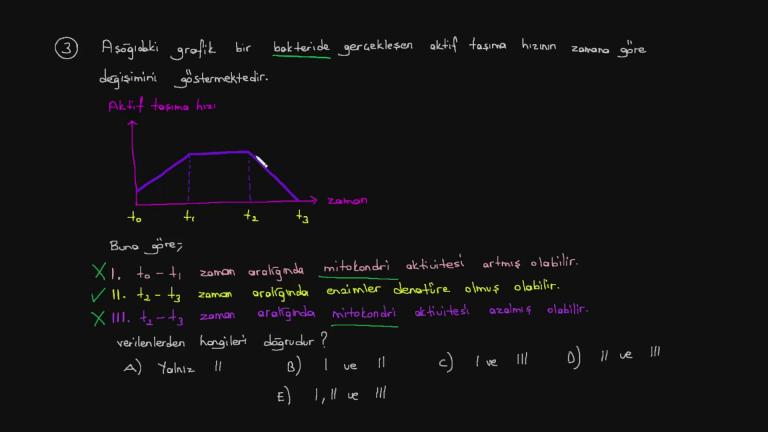 3 Aşağıdaki grafik bir bakteride gerçekleşen aktif taşıma hızının zamana göre
değişimini göstermektedir.
Aktif taşıma hızı
zaman
t₀ t₁ t₂ t₃
Buna göre;
X I. t₀ - t₁ zaman aralığında mitokondri aktivitesi artmış olabilir.
✓ II. t₂ - t₃ zaman aralığında enzimler denatüre olmuş olabilir.
X III. t₂ - t₃ zaman aralığında mitokondri aktivitesi azalmış olabilir.
verilenlerden hangileri doğrudur?
A) Yalnız II B) I ve II C) I ve III D) II ve III
E) I, II ve III